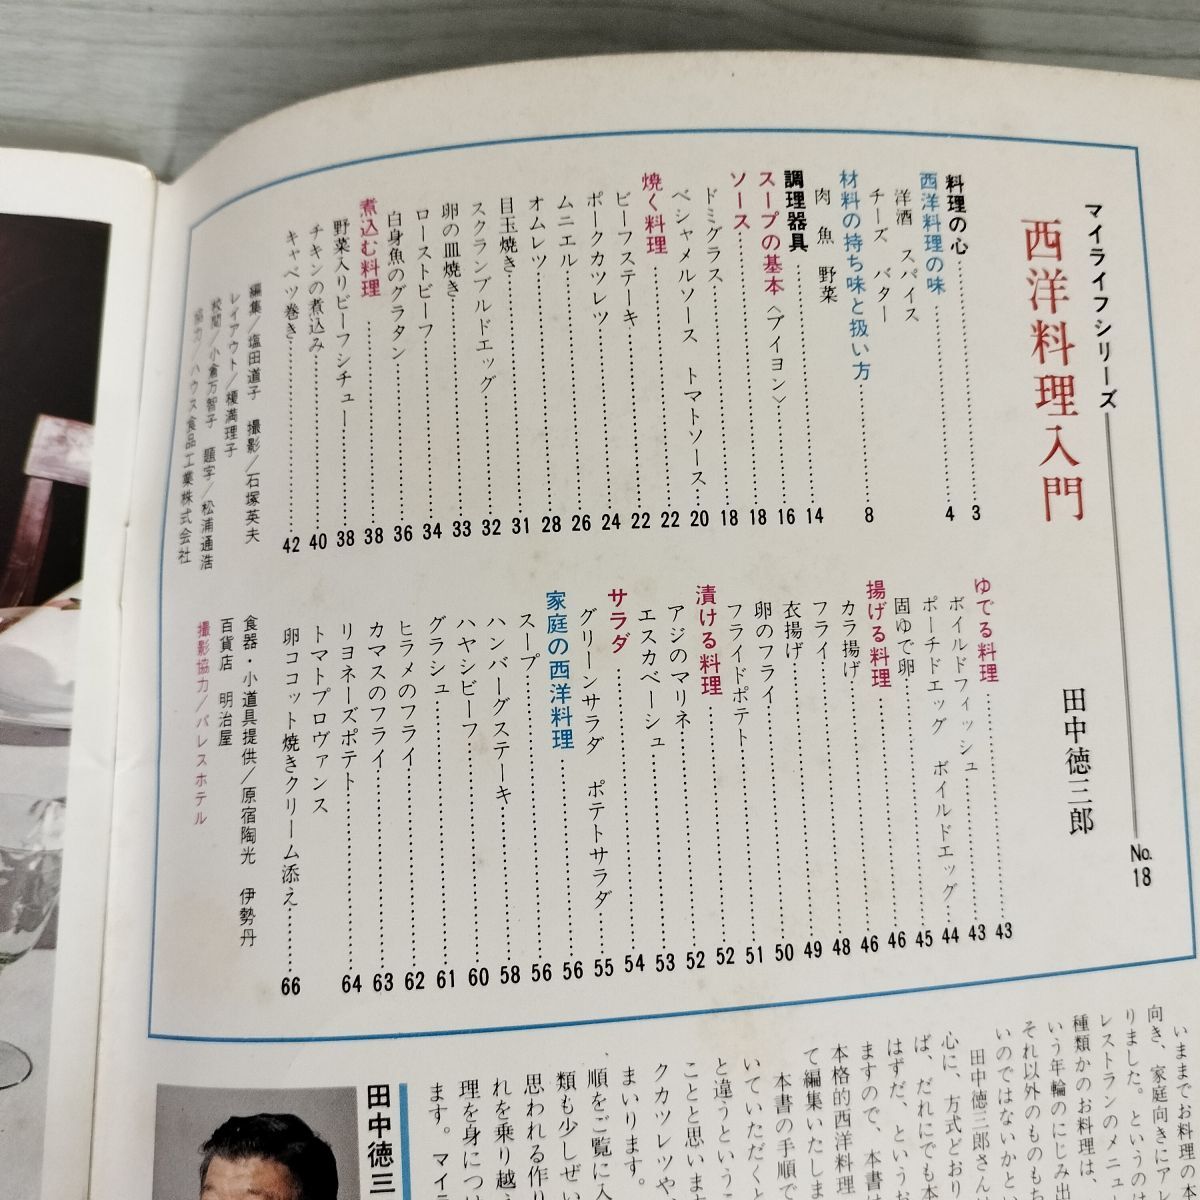 マイライフシリーズ No.18
西洋料理入門
田中徳三郎
料理の心 3
西洋料理の味 4
洋酒 スパイス
チーズ バター
材料の持ち味と扱い方 8
肉 魚 野菜
調理器具 14
スープの基本〈ブイヨン〉 16
ソース 18
ドミグラス 18
ベシャメルソース トマトソース 20
焼く料理 22
ビーフステーキ 22
ポークカツレツ 24
ムニエル 26
オムレツ 28
目玉焼き 31
スクランブルドエッグ 32
卵の皿焼き 33
ローストビーフ 34
白身魚のグラタン 36
煮込む料理 38
野菜入りビーフシチュー 38
チキンの煮込み 40
キャベツ巻き 42
ゆでる料理 43
ボイルドフィッシュ 43
ポーチドエッグ ボイルドエッグ 44
固ゆで卵 45
揚げる料理 46
カラ揚げ 46
フライ 48
衣揚げ 49
卵のフライ 50
フライドポテト 51
漬ける料理 52
アジのマリネ 52
エスカベーシュ 53
サラダ 54
グリーンサラダ ポテトサラダ 55
家庭の西洋料理 56
スープ 56
ハンバーグステーキ 58
ハヤシビーフ 60
グラシュ 61
ヒラメのフライ 62
カマスのフライ 63
リヨネーズポテト 64
トマトプロヴァンス
卵ココット焼きクリーム添え 66
編集/塩田道子 撮影/石塚英夫
レイアウト/榎満理子
校閲/小倉万智子 題字/松浦通浩
協力/ハウス食品工業株式会社
食器・小道具提供/原宿陶光 伊勢丹
百貨店 明治屋
撮影協力/パレスホテル
いままでお料理の本
向き、家庭向きにアレ
りました。というの
レストランのメニュ
種類かのお料理は、
いう年輪のにじみ出
それ以外のものもも
いのではないかとい
田中徳三郎さんの
心に、方式どおり
ば、だれにでも本
はずだ、というお
ますので、本書は
本格的西洋料理
て編集いたしま
本書の手順で
いていただくと
と違うというこ
ことと思います
クカツレツや、
まいります。
順をご覧に入
類も少しぜい
思われる作り
れを乗り越え
理を身につけ
ます。マイラ
田中徳三